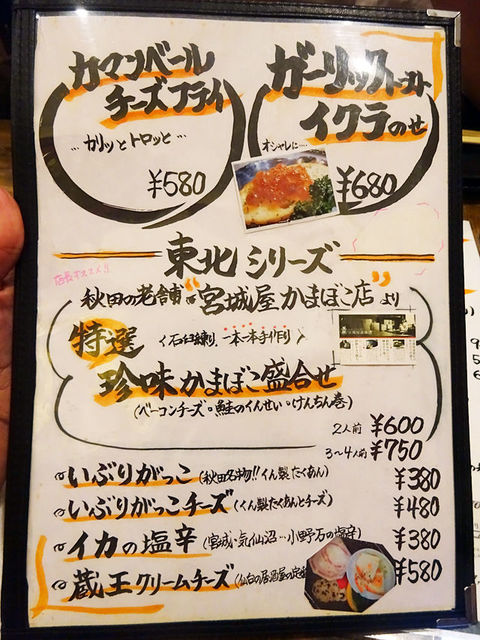 カマンベール
チーズフライ
… カリッとトロッと…
¥580
ガーリックトースト
イクラのせ
オシャレに…
¥680
東北シリーズ
店長オススメ!!
秋田の老舗"宮城屋かまぼこ店"より
特選
〈石臼練り、一本一本手作り〉
珍味かまぼこ盛合せ
(ベーコンチーズ・鮭のくんせい・けんちん巻)
2人前 ¥600
3〜4人前 ¥750
いぶりがっこ(秋田名物!!くん製たくあん) ¥380
いぶりがっこチーズ(くん製たくあんとチーズ) ¥480
イカの塩辛(宮城・気仙沼…小野万の塩辛) ¥380
蔵王クリームチーズ(仙台の居酒屋の定 ¥580